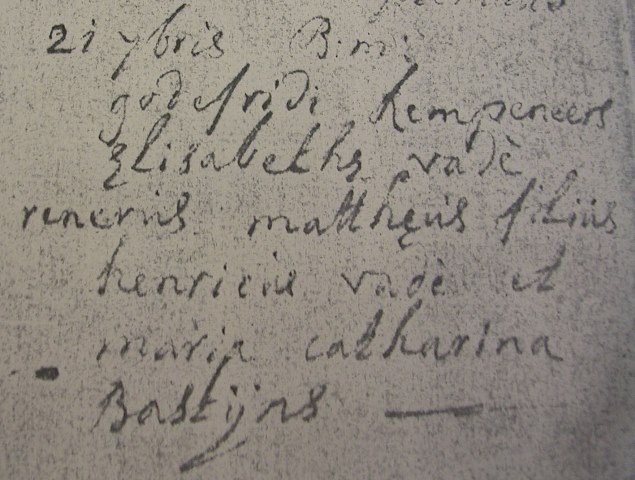 21 7bris B: m:
godefridi kempeneers
Elisabethę vadè
renerus matthęus filius
henricus vadè et
maria catharina
Bastijns —